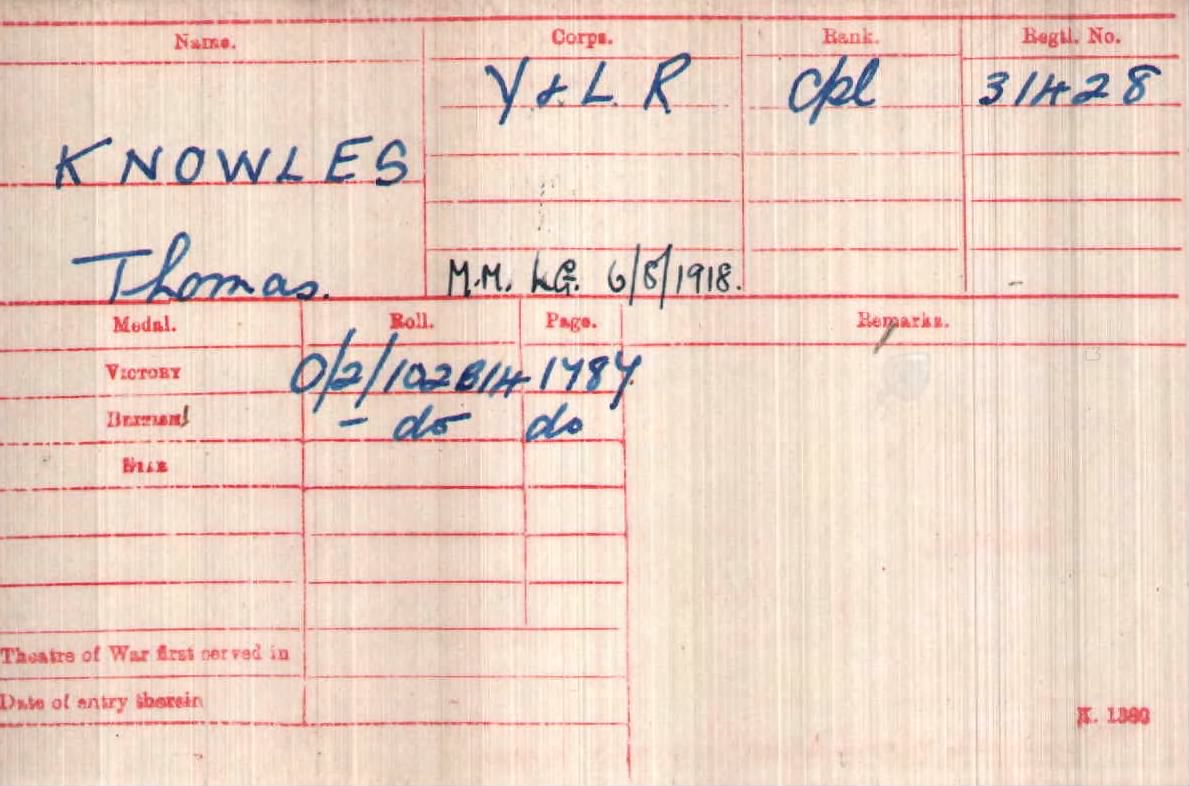 Name. Corps. Rank. Regtl. No.
Y & L. R Cpl 31428
KNOWLES
Thomas. M.M. LG. 6/8/1918.
Medal. Roll. Page. Remarks.
VICTORY 0/2/102B14 1787
BRITISH - do do
STAR
Theatre of War first served in
Date of entry therein
K. 1380